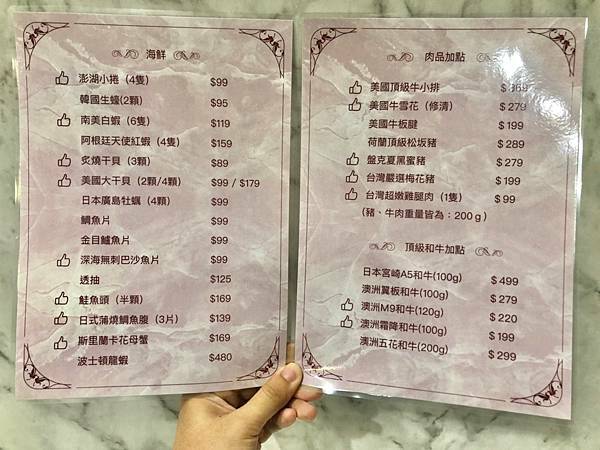 海鮮
澎湖小捲（4隻） $99
韓國生蠔(2顆) $95
南美白蝦（6隻） $119
阿根廷天使紅蝦（4隻） $159
炙燒干貝（3顆） $89
美國大干貝（2顆/4顆） $99 / $179
日本廣島牡蠣（4顆） $99
鯛魚片 $99
金目鱸魚片 $99
深海無刺巴沙魚片 $99
透抽 $125
鮭魚頭（半顆） $169
日式蒲燒鯛魚腹（3片） $139
斯里蘭卡花母蟹 $169
波士頓龍蝦 $480
肉品加點
美國頂級牛小排 $369
美國牛雪花（修清） $279
美國牛板腱 $199
荷蘭頂級松坂豬 $289
盤克夏黑蜜豬 $279
台灣嚴選梅花豬 $199
台灣超嫩雞腿肉（1隻） $99
（豬、牛肉重量皆為：200ｇ）
頂級和牛加點
日本宮崎A5和牛(100g) $499
澳洲翼板和牛(100g) $279
澳洲M9和牛(120g) $220
澳洲霜降和牛(100g) $199
澳洲五花和牛(200g) $299